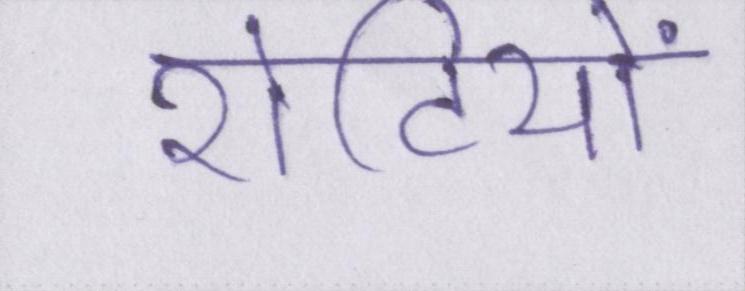 रोटियों